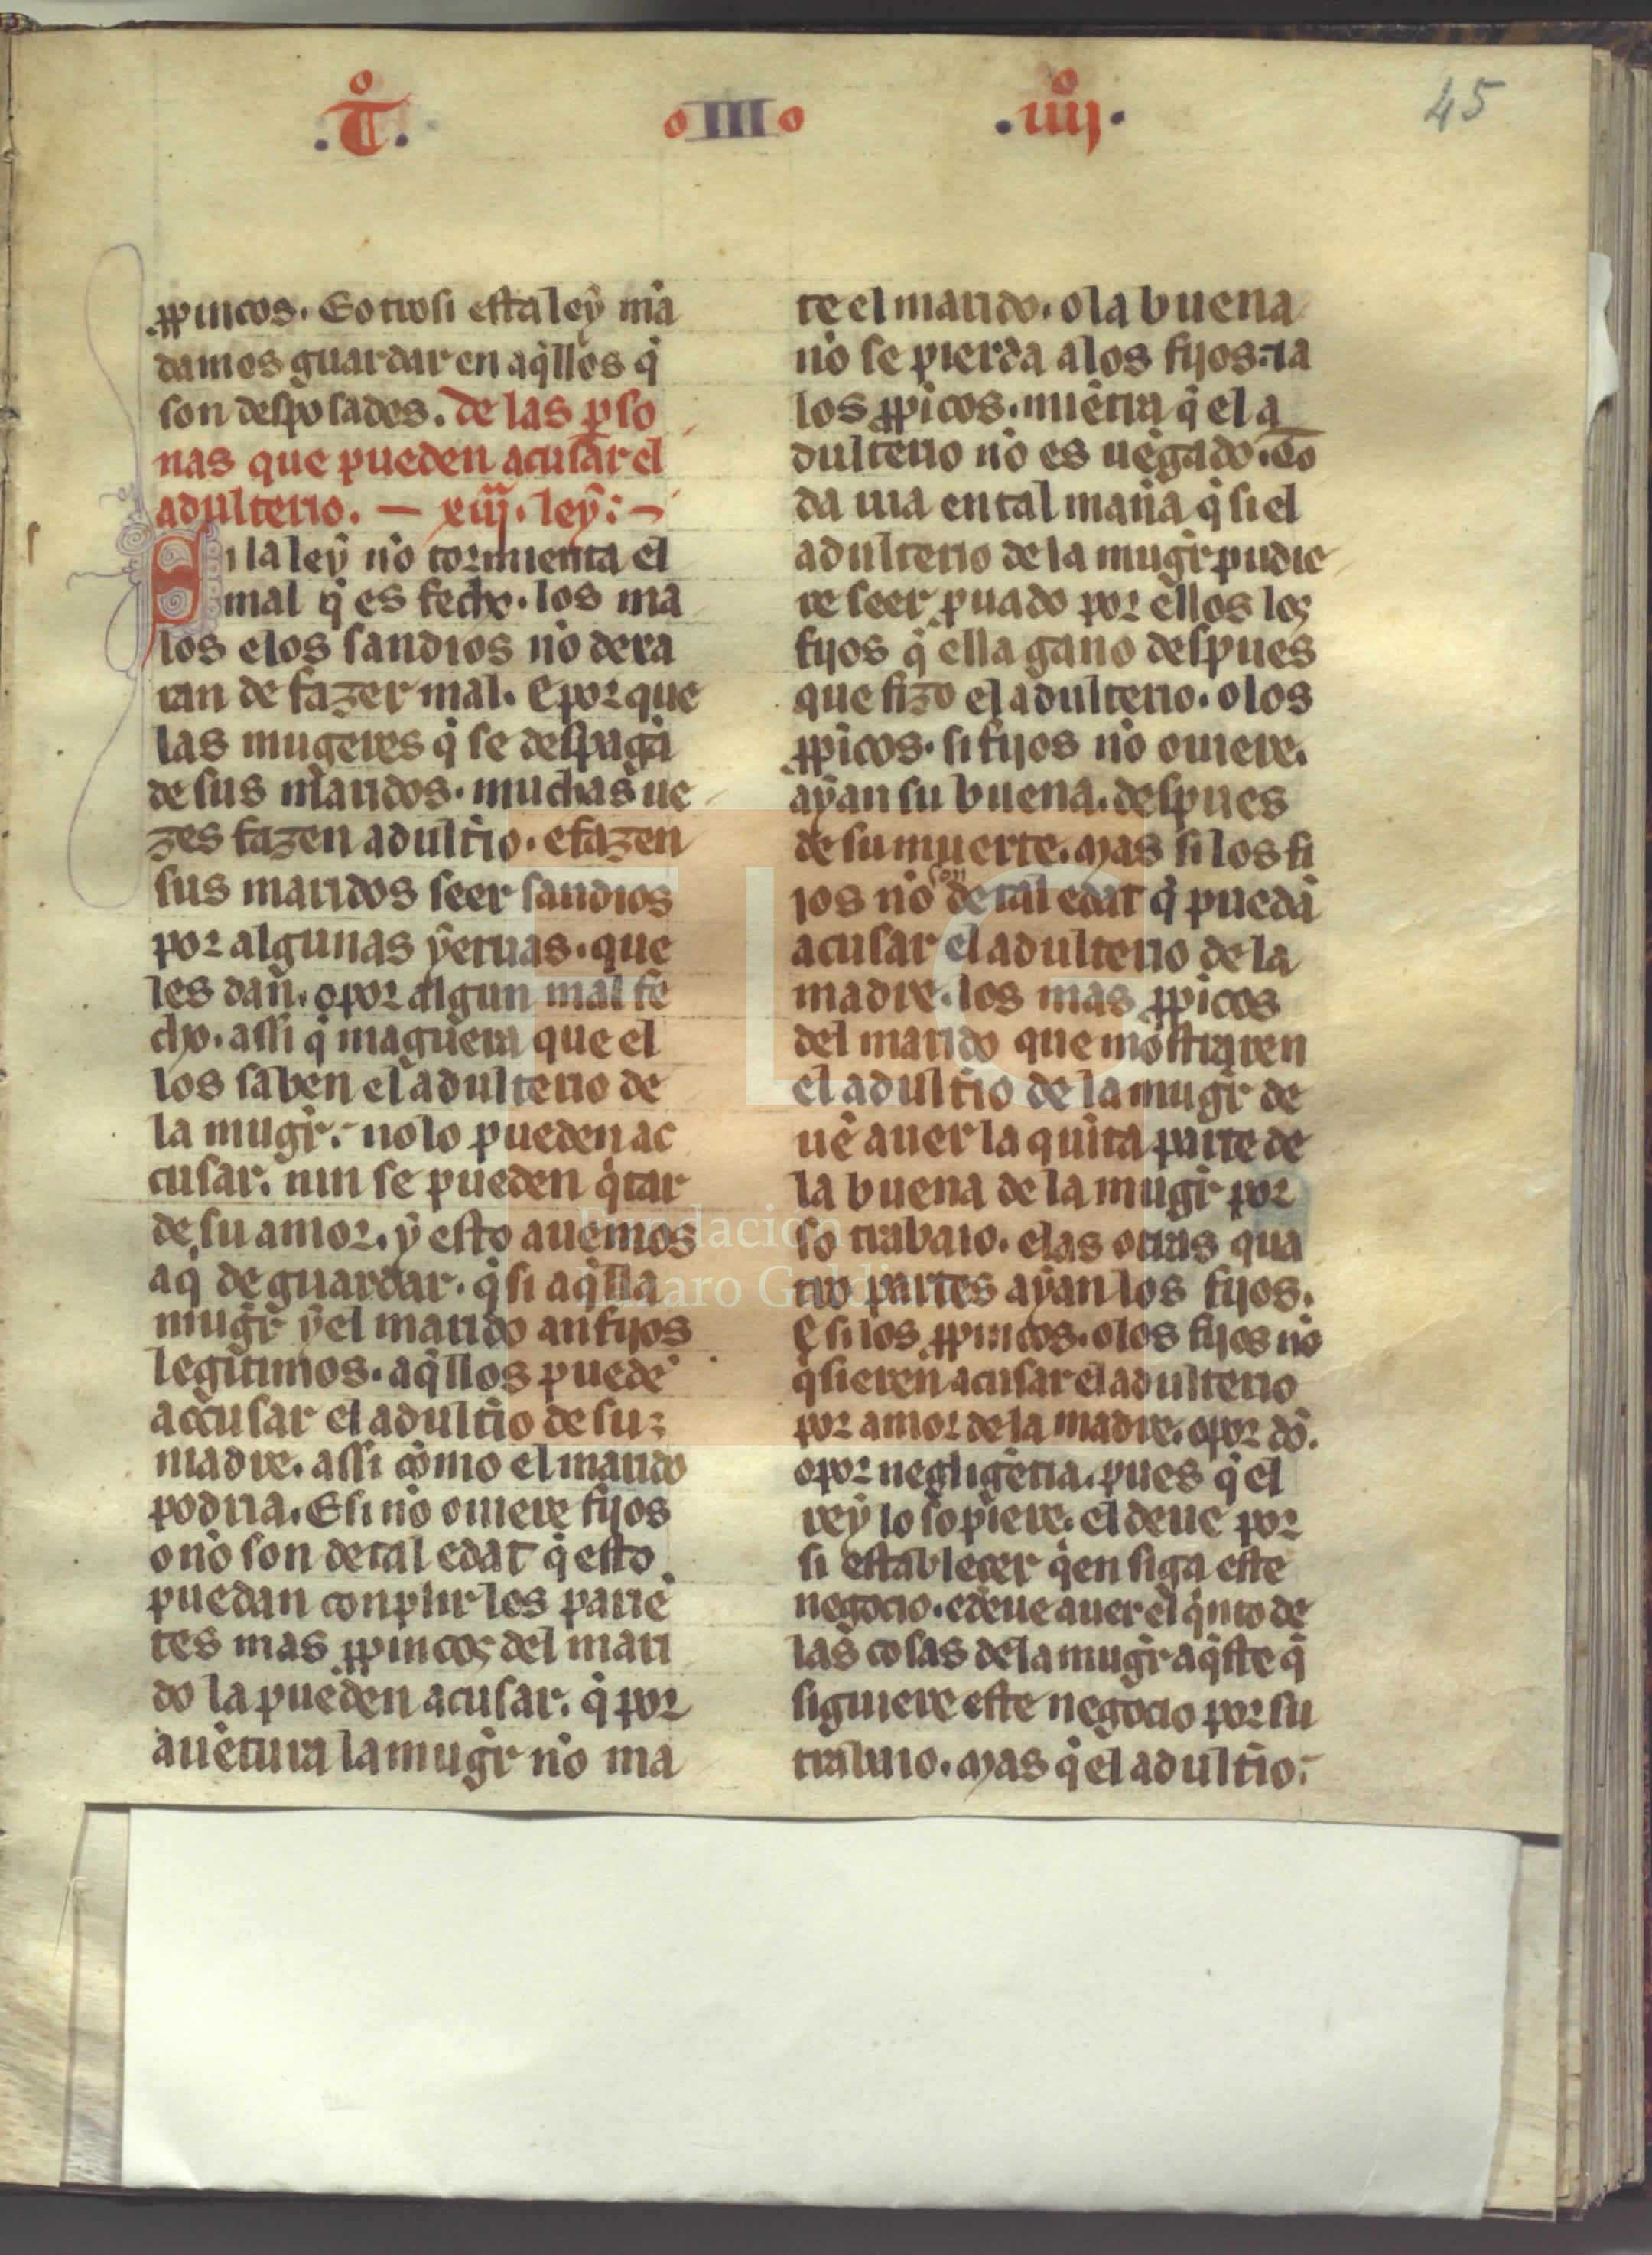 .T̊. oIIIo .iiij̊. 45
ꝓpincos. Eotrosi esta leẏ mā
damos guardar en aq̄llos q̄
son desposados. de las ꝑso
nas que pueden acusar el
adulterio. — xiij. leẏ
Si la leẏ nō tormienta el
mal q̄ es fecho. los ma
los elos sandios nō dexa
ran de fazer mal. E por que
las mugeres q̄ se despagā
de sus maridos. muchas ue
zes fazen adult̄io. efazen
sus maridos seer sandios
por algunas ẏeruas. que
les dan̄. o por algun mal fe
cho. assi q̄ maguera que el
los saben el adulterio de
la mugr̄. nōlo pueden ac
cusar. nin se pueden q̄tar
de su amor. ẏ esto auemos
aq̄ de guardar. q̄ si aq̄lla
mugr̄ ẏel marido an fijos
legitimos. aq̄llos puedē
accusar el adult̄io de su
madre. assi como el marido
podria. E si nō ouiere fijos
o nō son de tal edat q̄ esto
puedan conplir los pariē
tes mas ꝓpincos del mari
do la pueden acusar. q̄ por
auētura la mugr̄ nō ma
te el marido. o la buena
nō se pierda a los fijos. ia
los ꝓpicos. miētra q̄ el a
dulterio nō es uēgado. Eo
da uia en tal man̄a q̄ si el
adulterio de la mugr̄ pudie
re seer ꝓuado por ellos los
fijos q̄ ella gano despues
que fizo el adulterio. o los
ꝓpicos. si fijos nō ouiere.
aẏan su buena. despues
de su muerte. Mas si los fi
ios nō son de tal edat q̄ puedā
acusar el adulterio de la
madre. los mas ꝓpicos
del marido que mostraren
el adult̄io de la mugr̄ de
uē auer la quīta parte de
la buena de la mugr̄ por
so trabaio. elas otras qua
tro partes aẏan los fijos.
E si los ꝓpincos. o los fijos nō
q̄sieren acusar el adulterio
por amor de la madre. o por dō.
o por negligēcia. pues q̄ el
reẏ lo sopiere. el deue por
si establecer q̄en siga este
negocio. edeue auer el q̄nto de
las cosas dela mugr̄ aq̄ste q̄
siguiere este negocio por su
trabaio. Mas q̄ el adult̄io
FLG
Fundación
Lázaro Galdiano